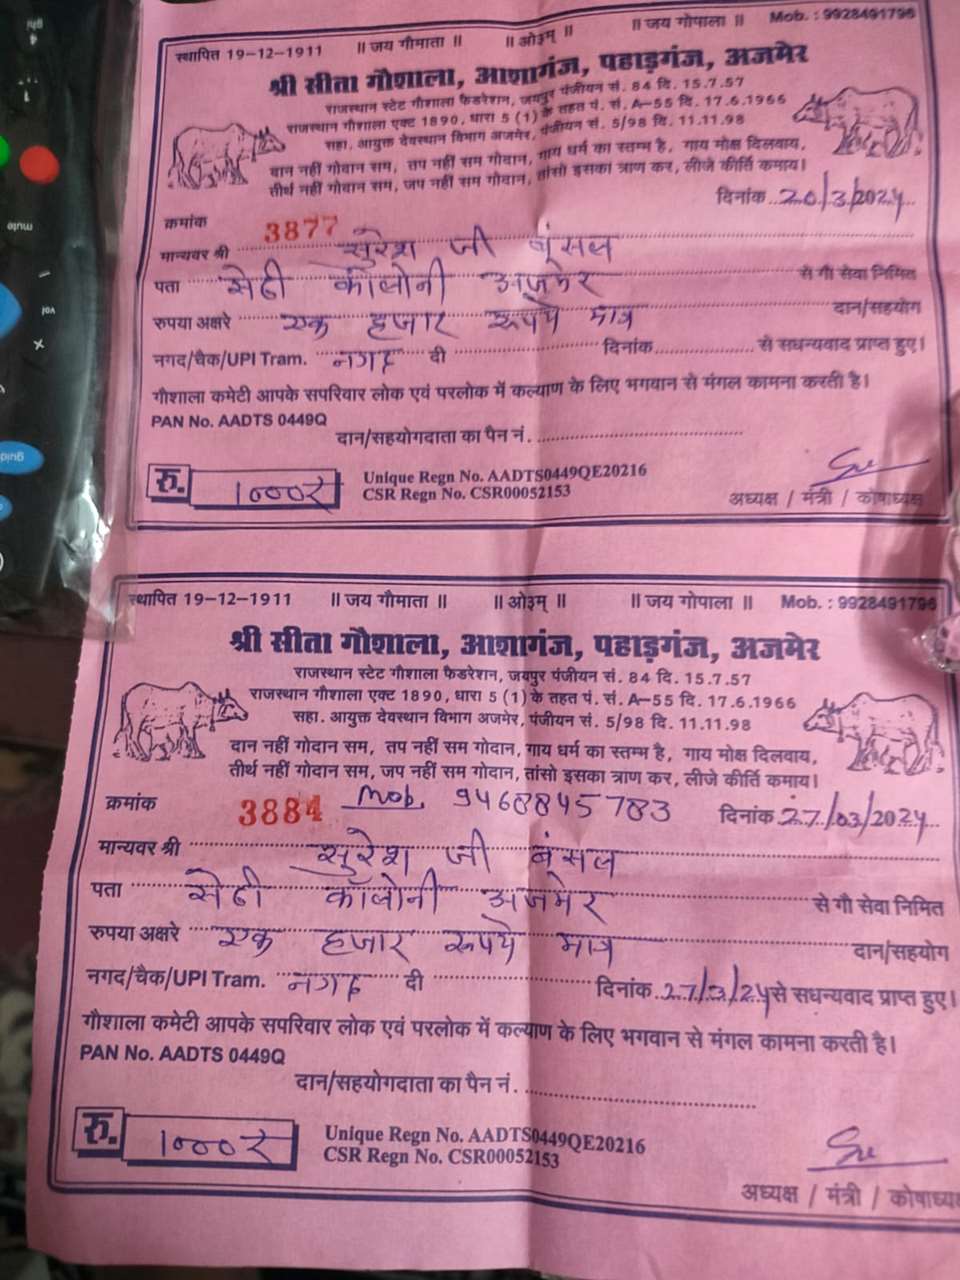 स्थापित 19-12-1911 || जय गौमाता || || ओ३म् || || जय गोपाला || Mob. : 9928491796
श्री सीता गौशाला, आशागंज, पहाड़गंज, अजमेर
राजस्थान स्टेट गौशाला फैडरेशन, जयपुर पंजीयन सं. 84 दि. 15.7.57
राजस्थान गौशाला एक्ट 1890, धारा 5 (1) के तहत पं. सं. A-55 दि. 17.6.1966
सहा. आयुक्त देवस्थान विभाग अजमेर, पंजीयन सं. 5/98 दि. 11.11.98
दान नहीं गोदान सम, तप नहीं सम गोदान, गाय धर्म का स्तम्भ है, गाय मोक्ष दिलवाय,
तीर्थ नहीं गोदान सम, जप नहीं सम गोदान, तांसो इसका त्राण कर, लीजे कीर्ति कमाय।
दिनांक 20/3/2024
क्रमांक 3877
मान्यवर श्री सुरेश जी बंसल
पता सेठी कॉलोनी अजमेर से गौ सेवा निमित
रुपया अक्षरे एक हजार रूपये मात्र दान/सहयोग
नगद/चैक/UPI Tram. नगद दी दिनांक से सधन्यवाद प्राप्त हुए।
गौशाला कमेटी आपके सपरिवार लोक एवं परलोक में कल्याण के लिए भगवान से मंगल कामना करती है।
PAN No. AADTS 0449Q
दान/सहयोगदाता का पैन नं.
रु. 1000र Unique Regn No. AADTS0449QE20216
CSR Regn No. CSR00052153
अध्यक्ष / मंत्री / कोषाध्यक्ष
स्थापित 19-12-1911 || जय गौमाता || || ओ३म् || || जय गोपाला || Mob. : 9928491796
श्री सीता गौशाला, आशागंज, पहाड़गंज, अजमेर
राजस्थान स्टेट गौशाला फैडरेशन, जयपुर पंजीयन सं. 84 दि. 15.7.57
राजस्थान गौशाला एक्ट 1890, धारा 5 (1) के तहत पं. सं. A-55 दि. 17.6.1966
सहा. आयुक्त देवस्थान विभाग अजमेर, पंजीयन सं. 5/98 दि. 11.11.98
दान नहीं गोदान सम, तप नहीं सम गोदान, गाय धर्म का स्तम्भ है, गाय मोक्ष दिलवाय,
तीर्थ नहीं गोदान सम, जप नहीं सम गोदान, तांसो इसका त्राण कर, लीजे कीर्ति कमाय।
क्रमांक 3884 Mob. 9468845783 दिनांक 27/03/2024
मान्यवर श्री सुरेश जी बंसल
पता सेठी कॉलोनी अजमेर से गौ सेवा निमित
रुपया अक्षरे एक हजार रूपये मात्र दान/सहयोग
नगद/चैक/UPI Tram. नगद दी दिनांक 27/3/24 से सधन्यवाद प्राप्त हुए।
गौशाला कमेटी आपके सपरिवार लोक एवं परलोक में कल्याण के लिए भगवान से मंगल कामना करती है।
PAN No. AADTS 0449Q
दान/सहयोगदाता का पैन नं.
रु. 1000र Unique Regn No. AADTS0449QE20216
CSR Regn No. CSR00052153
अध्यक्ष / मंत्री / कोषाध्यक्ष
mute
vol